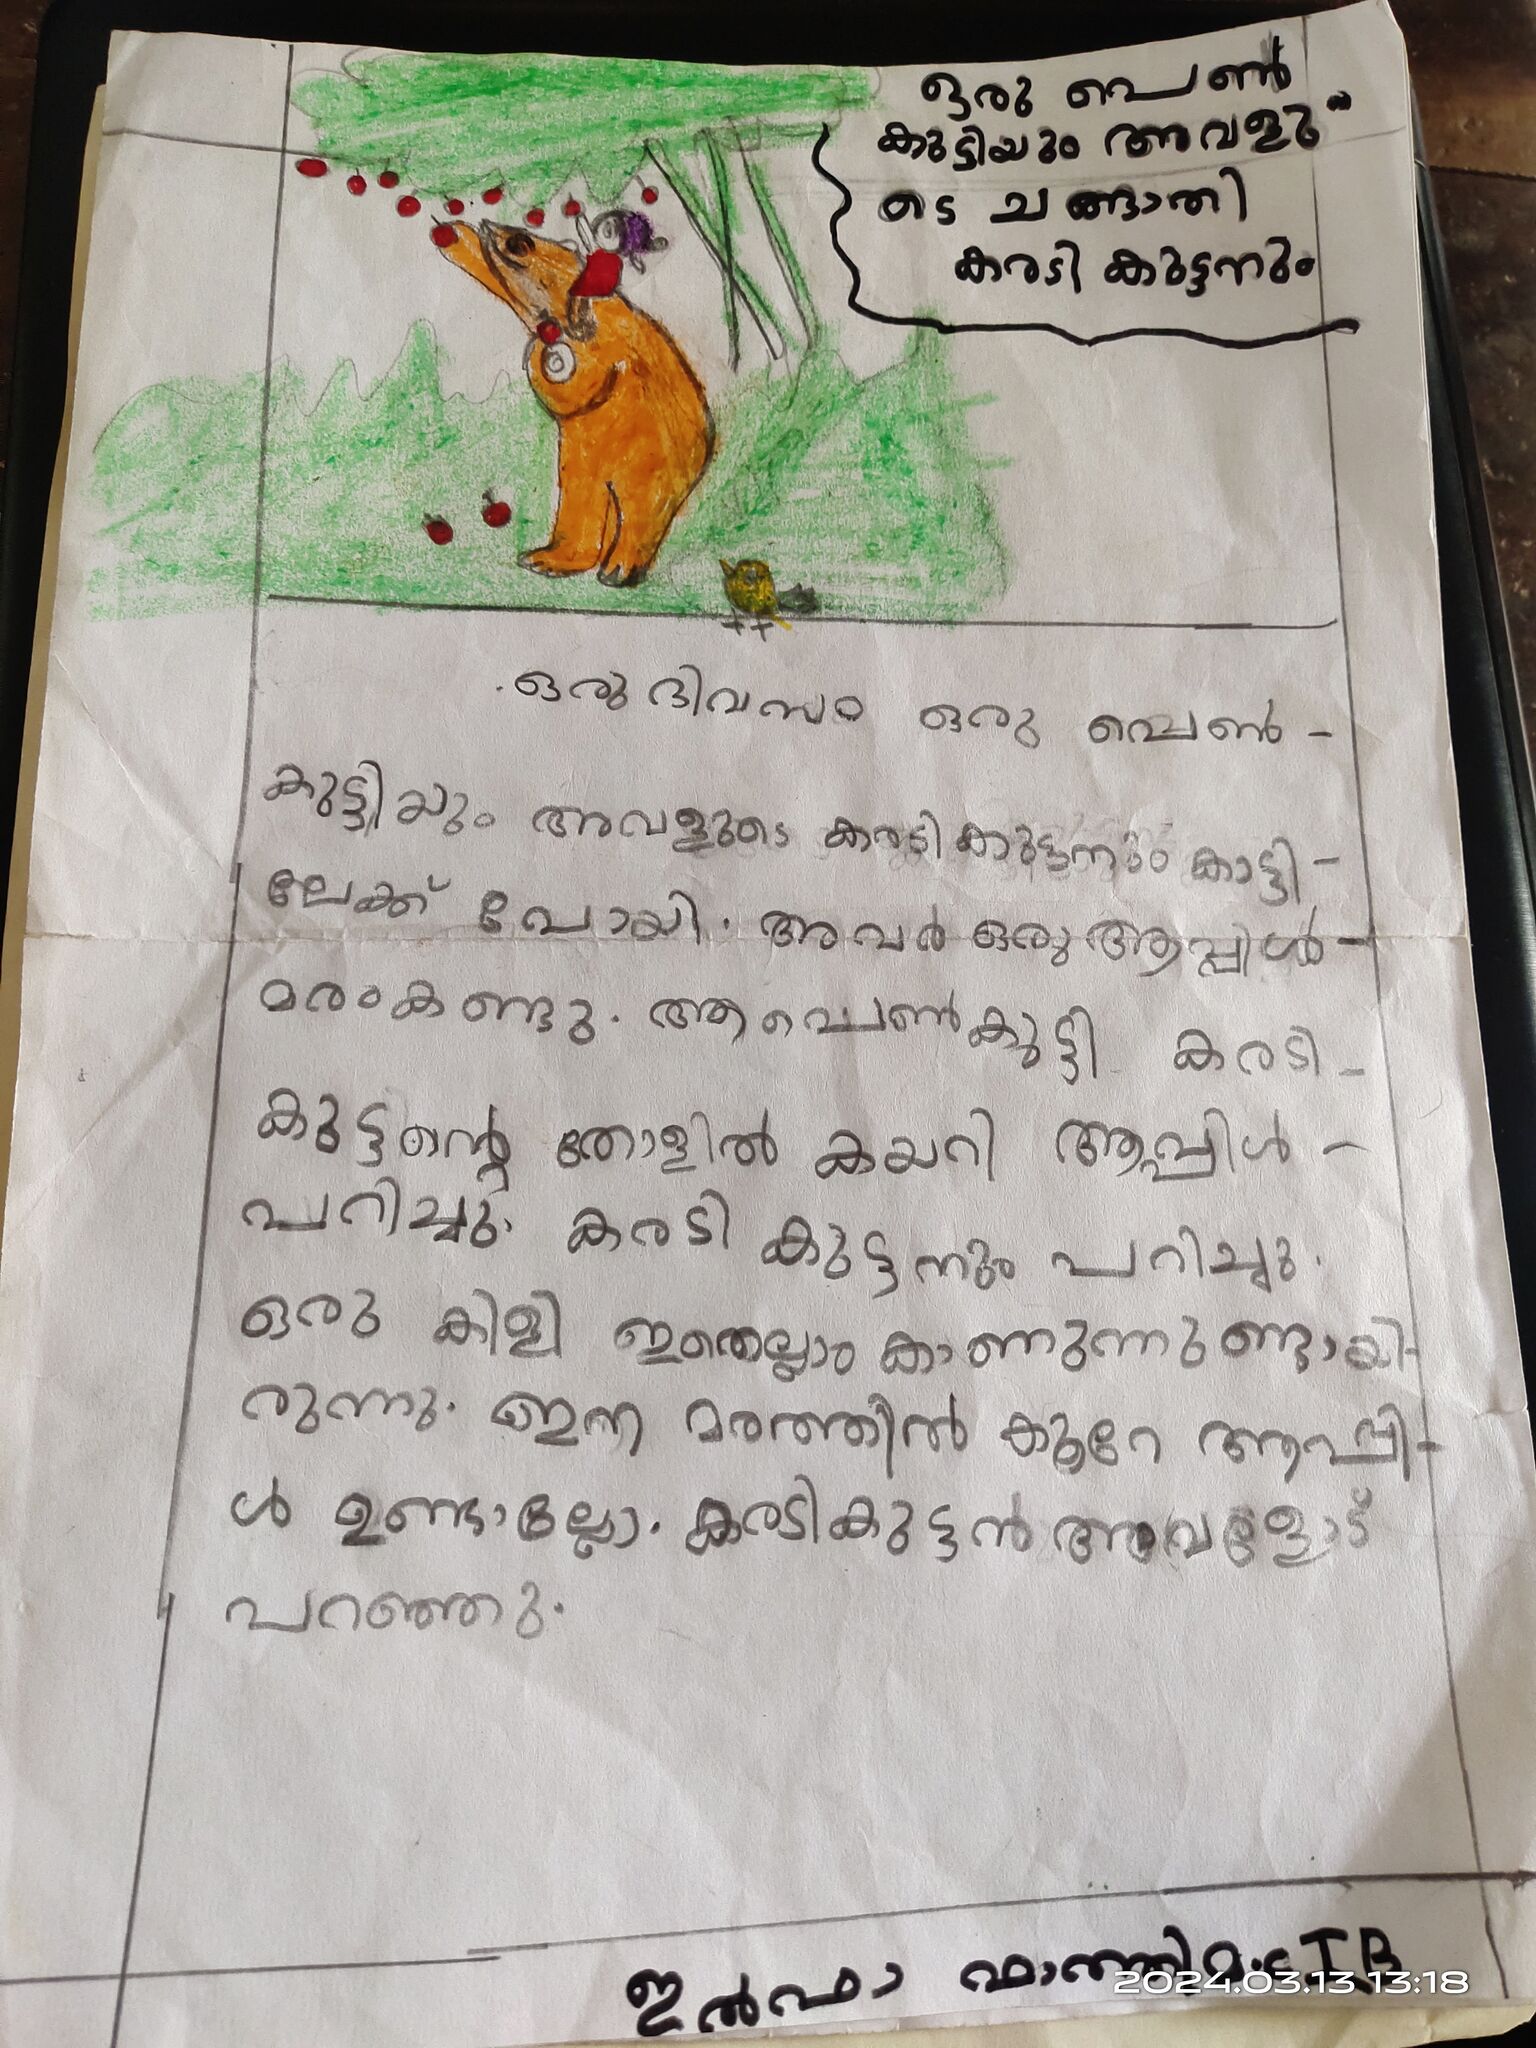 ഒരു പെൺ
കുട്ടിയും അവളു"
ടെ ചങ്ങാതി
കരടി കുട്ടനും
ഒരു ദിവസം ഒരു പെൺ-
കുട്ടിയും അവളുടെ കരടികുട്ടനും കാട്ടി-
ലേക്ക് പോയി. അവർ ഒരു ആപ്പിൾ-
മരംകണ്ടു. ആ പെൺകുട്ടി കരടി-
കുട്ടന്റെ തോളിൽ കയറി ആപ്പിൾ-
പറിച്ചു. കരടി കുട്ടനും പറിച്ചു.
ഒരു കിളി ഇതെല്ലാം കാണുന്നുണ്ടായി-
രുന്നു. ഇന്ന മരത്തിൽ കുറേ ആപ്പി-
ൾ ഉണ്ടാല്ലോ. കരടികുട്ടൻ അവളോട്
പറഞ്ഞു.
ഇൽഫാ ഫാത്തിമ. I B
2024.03.13 13:18